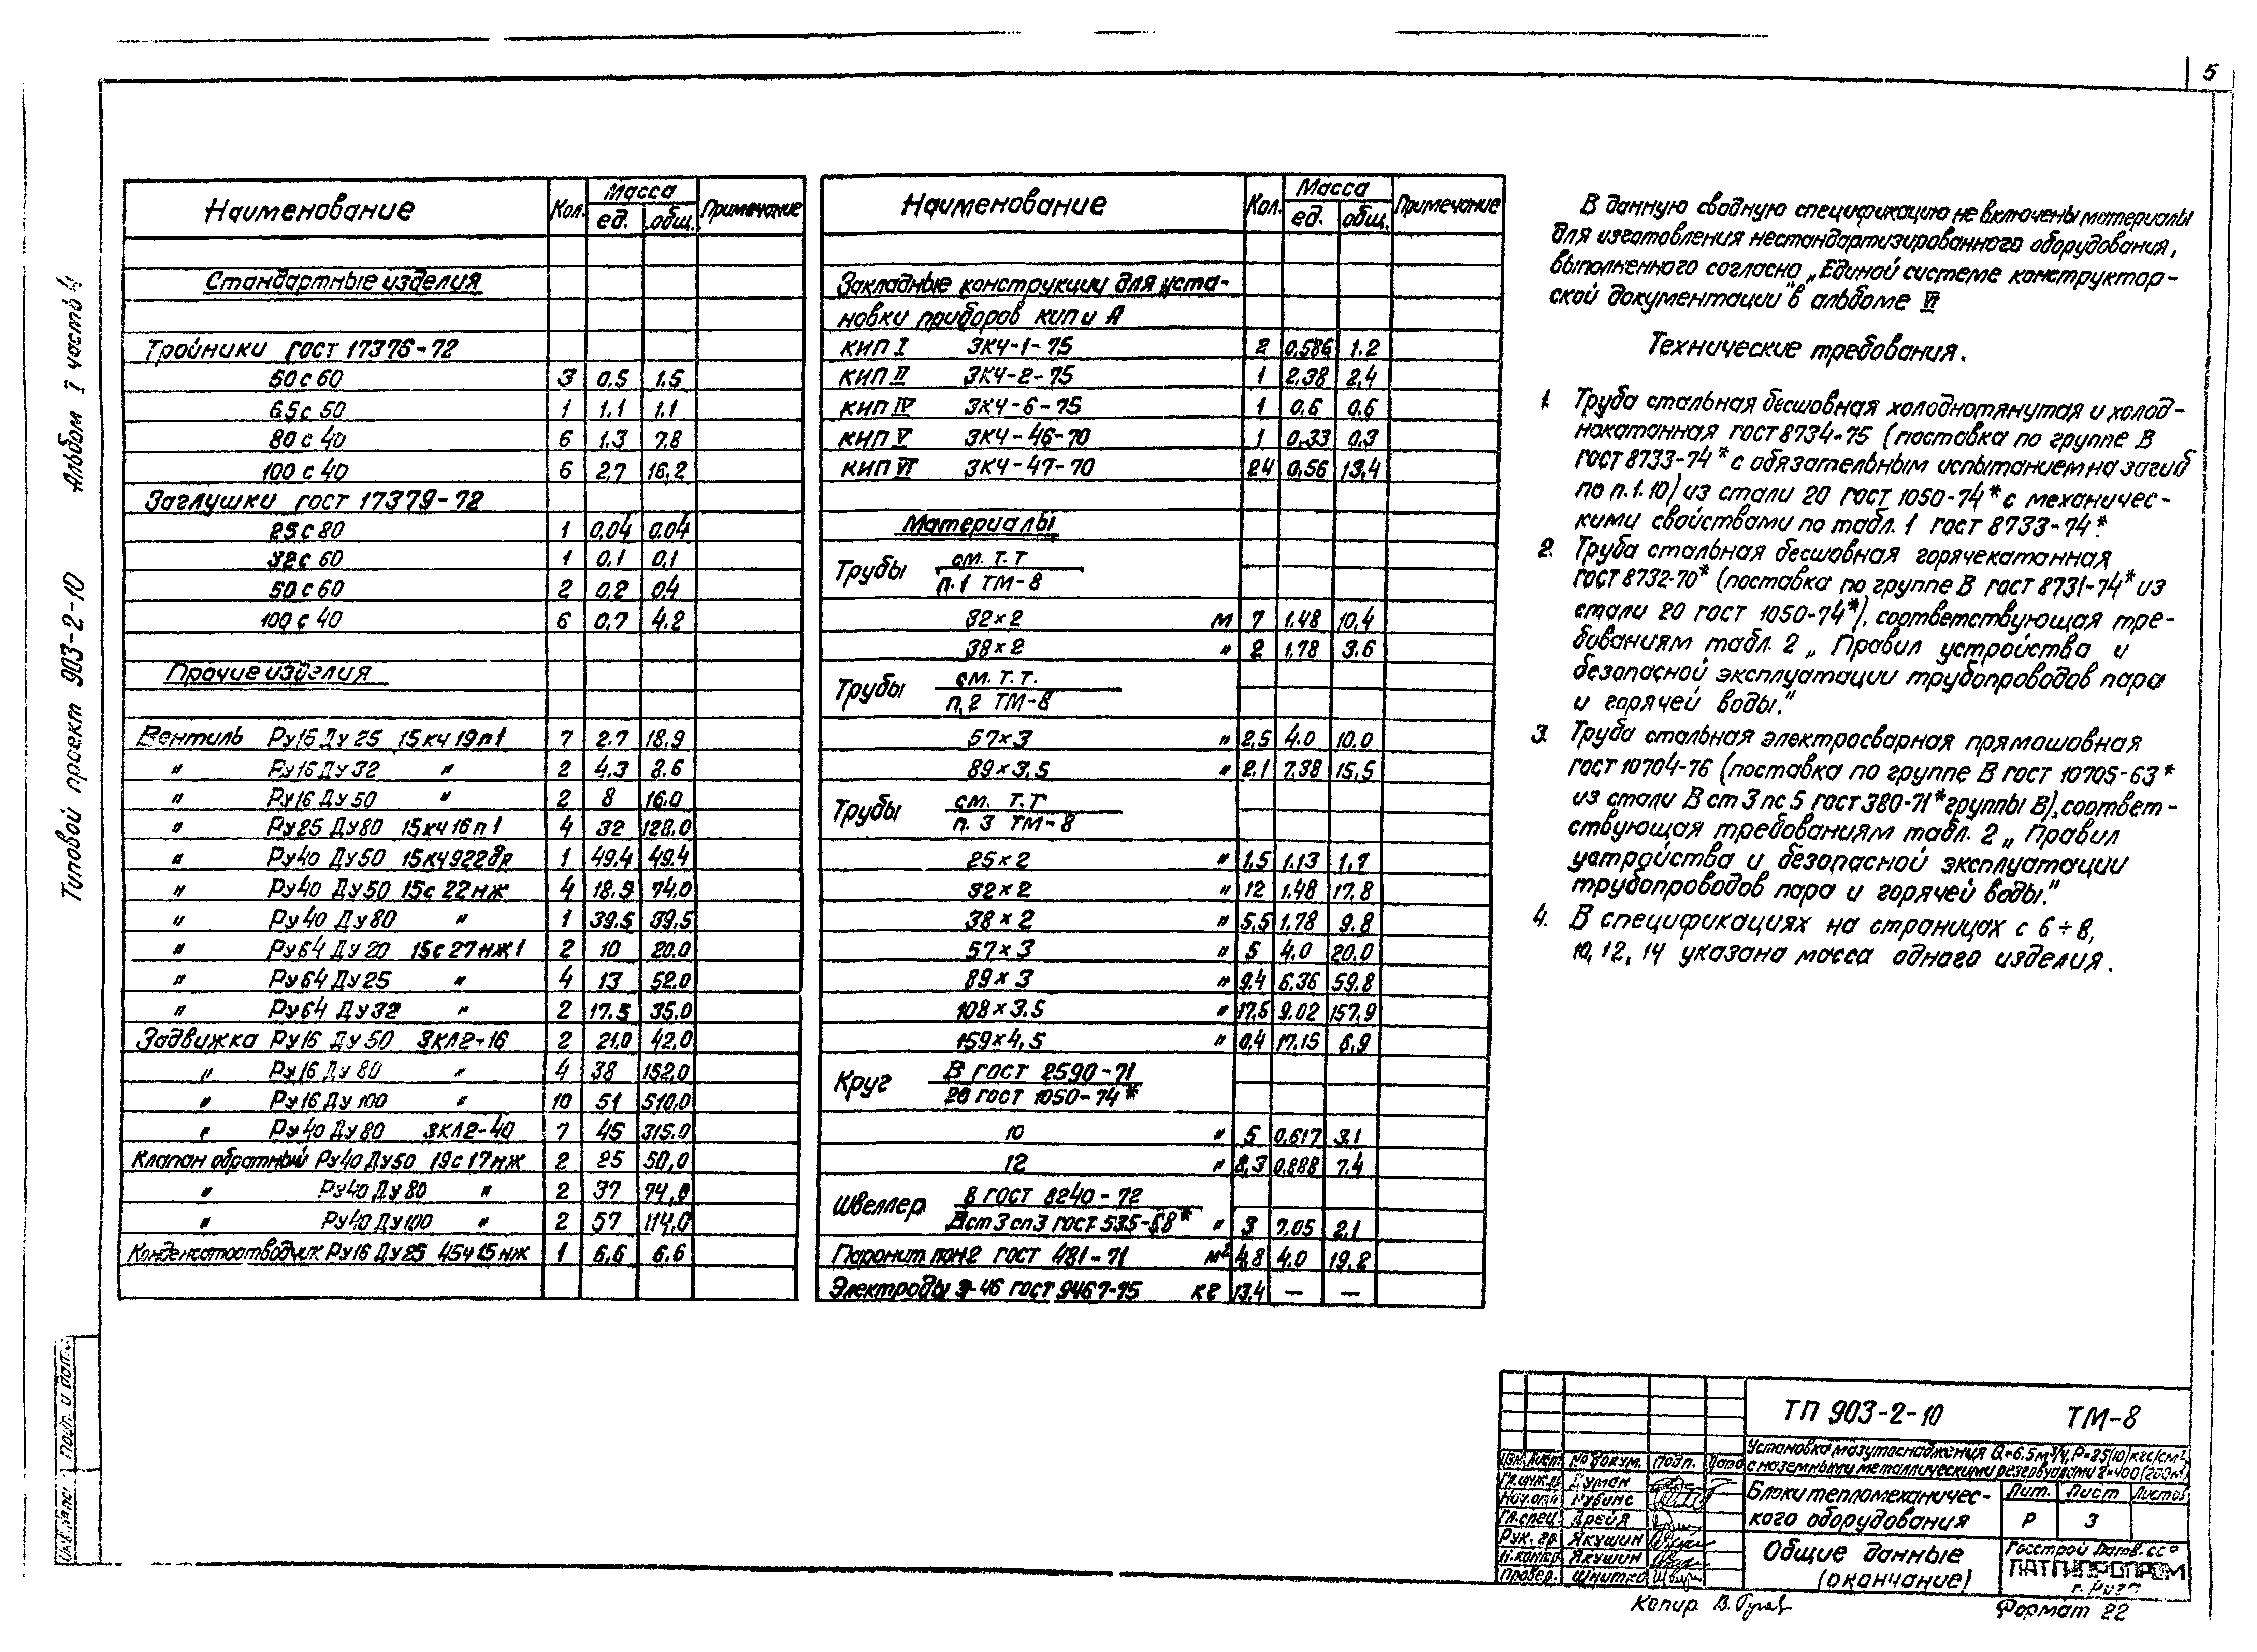 5
Типовой проект 903-2-10 Альбом I часть 4
Наименование Кол. Масса Примечание
ед. общ.
Стандартные изделия
Тройники ГОСТ 17376-72
50 с 60 3 0.5 1.5
65 с 50 1 1.1 1.1
80 с 40 6 1.3 7.8
100 с 40 6 2.7 16.2
Заглушки ГОСТ 17379-72
25 с 80 1 0,04 0.04
32 с 60 1 0.1 0,1
50 с 60 2 0.2 0.4
100 с 40 6 0.7 4.2
Прочие изделия
Вентиль Ру16 Ду 25 15кч 19п1 7 2.7 18.9
" Ру16 Ду 32 " 2 4.3 8.6
" Ру16 Ду 50 " 2 8 16.0
" Ру25 Ду80 15кч 16п1 4 32 128.0
" Ру40 Ду50 15кч922бр 1 49.4 49.4
" Ру40 Ду50 15с 22нж 4 18.5 74.0
" Ру40 Ду80 " 1 39.5 39,5
" Ру64 Ду 20 15с 27нж1 2 10 20.0
" Ру64 Ду25 " 4 13 52.0
" Ру64 Ду32 " 2 17.5 35.0
Задвижка Ру16 Ду 50 ЗКЛ2-16 2 21.0 42.0
" Ру16 Ду 80 " 4 38 152.0
" Ру16 Ду 100 " 10 51 510.0
" Ру40 Ду80 ЗКЛ2-40 7 45 315.0
Клапан обратный Ру40 Ду50 19с17нж 2 25 50,0
" Ру40 Ду80 " 2 37 74,0
" Ру40 Ду100 " 2 57 114.0
Конденсатоотводчик Ру16 Ду25 45ч15нж 1 6,6 6.6
Наименование Кол. Масса Примечание
ед. общ.
Закладные конструкции для уста-
новки приборов КИП и А
КИП I ЗКЧ-1-75 2 0,586 1.2
КИП II ЗКЧ-2-75 1 2.38 2.4
КИП IV ЗКЧ-6-75 1 0.6 0.6
КИП V ЗКЧ-46-70 1 0,33 0.3
КИП VI ЗКЧ-47-70 24 0,56 13,4
Материалы
Трубы см. т.т
п.1 ТМ-8
32×2 м 7 1.48 10,4
38×2 " 2 1,78 3.6
Трубы см. т.т.
п.2 ТМ-8
57×3 " 2,5 4.0 10.0
89×3,5 " 2.1 7.38 15,5
Трубы см. т.т
п. 3 ТМ-8
25×2 " 1,5 1.13 1,7
32×2 " 12 1.48 17.8
38×2 " 5,5 1,78 9.8
57×3 " 5 4.0 20,0
89×3 " 9.4 6.36 59.8
108×3.5 " 17,5 9.02 157,9
159×4,5 " 0,4 17.15 6,9
Круг В ГОСТ 2590-71
20 ГОСТ 1050-74*
10 " 5 0,617 3.1
12 " 8,3 0.888 7.4
Швеллер 8 ГОСТ 8240-72
Вст3сп3 ГОСТ 535-58* " 3 7,05 2,1
Паронит пон2 ГОСТ 481-71 м² 4,8 4,0 19,2
Электроды Э-46 ГОСТ 9467-75 кг 13,4 — —
В данную сводную спецификацию не включены материалы
для изготовления нестандартизированного оборудования,
выполненного согласно „Единой системе конструктор-
ской документации" в альбоме VI
Технические требования.
1. Труба стальная бесшовная холоднотянутая и холод-
нокатанная ГОСТ 8734-75 (поставка по группе В
ГОСТ 8733-74* с обязательным испытанием на загиб
по п.1.10) из стали 20 ГОСТ 1050-74* с механичес-
кими свойствами по табл. 1 ГОСТ 8733-74*.
2. Труба стальная бесшовная горячекатанная
ГОСТ 8732-70* (поставка по группе В ГОСТ 8731-74* из
стали 20 ГОСТ 1050-74*), соответствующая тре-
бованиям табл. 2 „Правил устройства и
безопасной эксплуатации трубопроводов пара
и горячей воды."
3. Труба стальная электросварная прямошовная
ГОСТ 10704-76 (поставка по группе В ГОСТ 10705-63*
из стали В ст 3 пс 5 ГОСТ 380-71* группы В), соответ-
ствующая требованиям табл. 2 „Правил
устройства и безопасной эксплуатации
трубопроводов пара и горячей воды."
4. В спецификациях на страницах с 6÷8,
10, 12, 14 указана масса одного изделия.
ТП 903-2-10 ТМ-8
Установка мазутоснабжения Q=6.5м³/ч, Р=25(10)кгс/см²
с наземными металлическими резервуарами 2×400(200м³)
Изм. Лист № докум. Подп. Дата
Гл.инж.пр Думан
Нач.отд Рубинс
Гл.спец. Дрейя
Рук. гр. Якушин
Н.контр. Якушин
Провер. Шнитко
Блоки тепломеханичес-
кого оборудования
Лит. Лист Листов
Р 3
Общие данные
(окончание)
Госстрой Латв. сср
ЛАТГИПРОПРОМ
г. Рига
Копир. В.
Формат 22
Подп. и дата